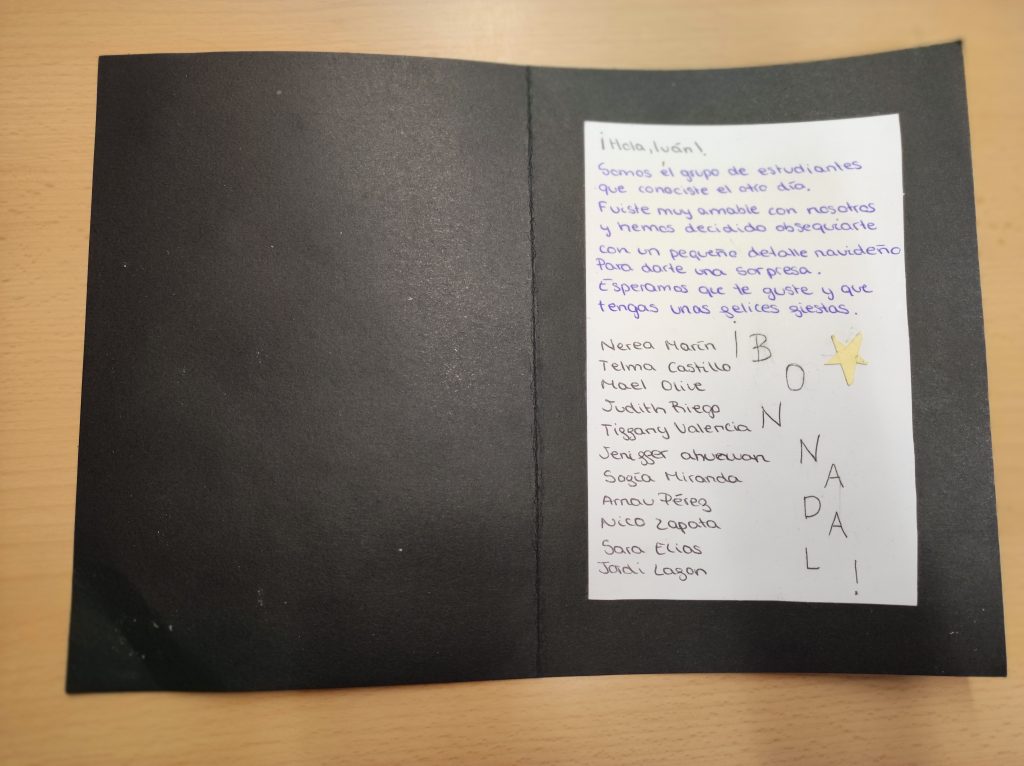 ¡Hola, Iván!
Somos él grupo de estudiantes
que conociste el otro día.
Fuiste muy amable con nosotros
y hemos decidido obsequiarte
con un pequeño detalle navideño
Para darte una sorpresa.
Esperamos que te guste y que
tengas unas felices fiestas.
Nerea Marín
Telma Castillo
Mael Olive
Judith Riego
Tiffany Valencia
Jeniffer
Sofía Miranda
Arnau Pérez
Nico Zapata
Sara Elias
Jordi Lagon
¡BON NADAL!